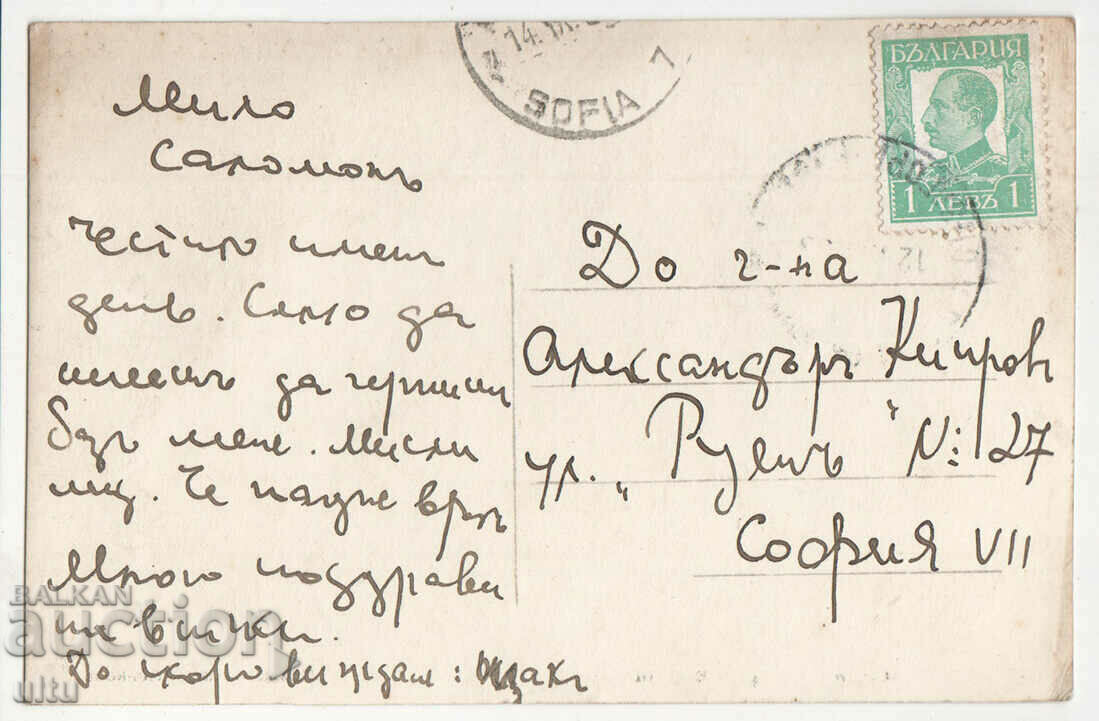 14.IX.
SOFIA
1
БЪЛГАРИЯ
1 ЛЕВЪ 1
12
Мило
Саломонъ
Честито имен
день. Само да
да
безъ мене. Мисли
му. Че падне връх
Много поздрави
на всички.
До скоро виждане:
До г-на
Александъръ Кипровъ
ул. „Руенъ" №: 27
София VII
BALKAN
auction
ultu